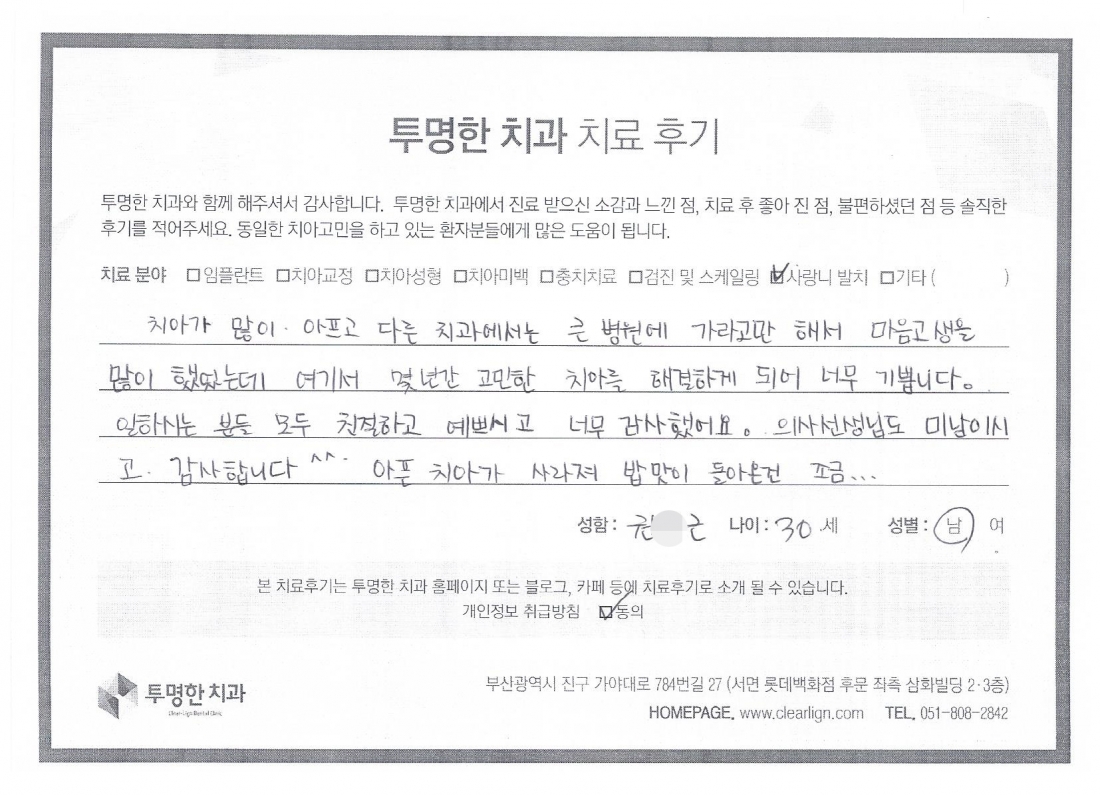 투명한 치과 치료 후기
투명한 치과와 함께 해주셔서 감사합니다. 투명한 치과에서 진료 받으신 소감과 느낀 점, 치료 후 좋아 진 점, 불편하셨던 점 등 솔직한
후기를 적어주세요. 동일한 치아고민을 하고 있는 환자분들에게 많은 도움이 됩니다.
치료 분야 □임플란트 □치아교정 □치아성형 □치아미백 □충치치료 □검진 및 스케일링 ☑사랑니 발치 □기타 ( )
치아가 많이· 아프고 다른 치과에서는 큰 병원에 가라고만 해서 마음고생을
많이 했었는데 여기서 몇년간 고민한 치아를 해결하게 되어 너무 기쁩니다.
일하시는 분들 모두 친절하고 예쁘시고 너무 감사했어요. 의사선생님도 미남이시
고. 감사합니다 ^^. 아픈 치아가 사라져 밥맛이 돌아온건 쪼금...
성함 : 권 근 나이 : 30 세 성별 : 남 여
본 치료후기는 투명한 치과 홈페이지 또는 블로그, 카페 등에 치료후기로 소개 될 수 있습니다.
개인정보 취급방침 ☑동의
투명한 치과
Clear-Lign Dental Clinic
부산광역시 진구 가야대로 784번길 27 (서면 롯데백화점 후문 좌측 삼화빌딩 2·3층)
HOMEPAGE. www.clearlign.com TEL. 051-808-2842